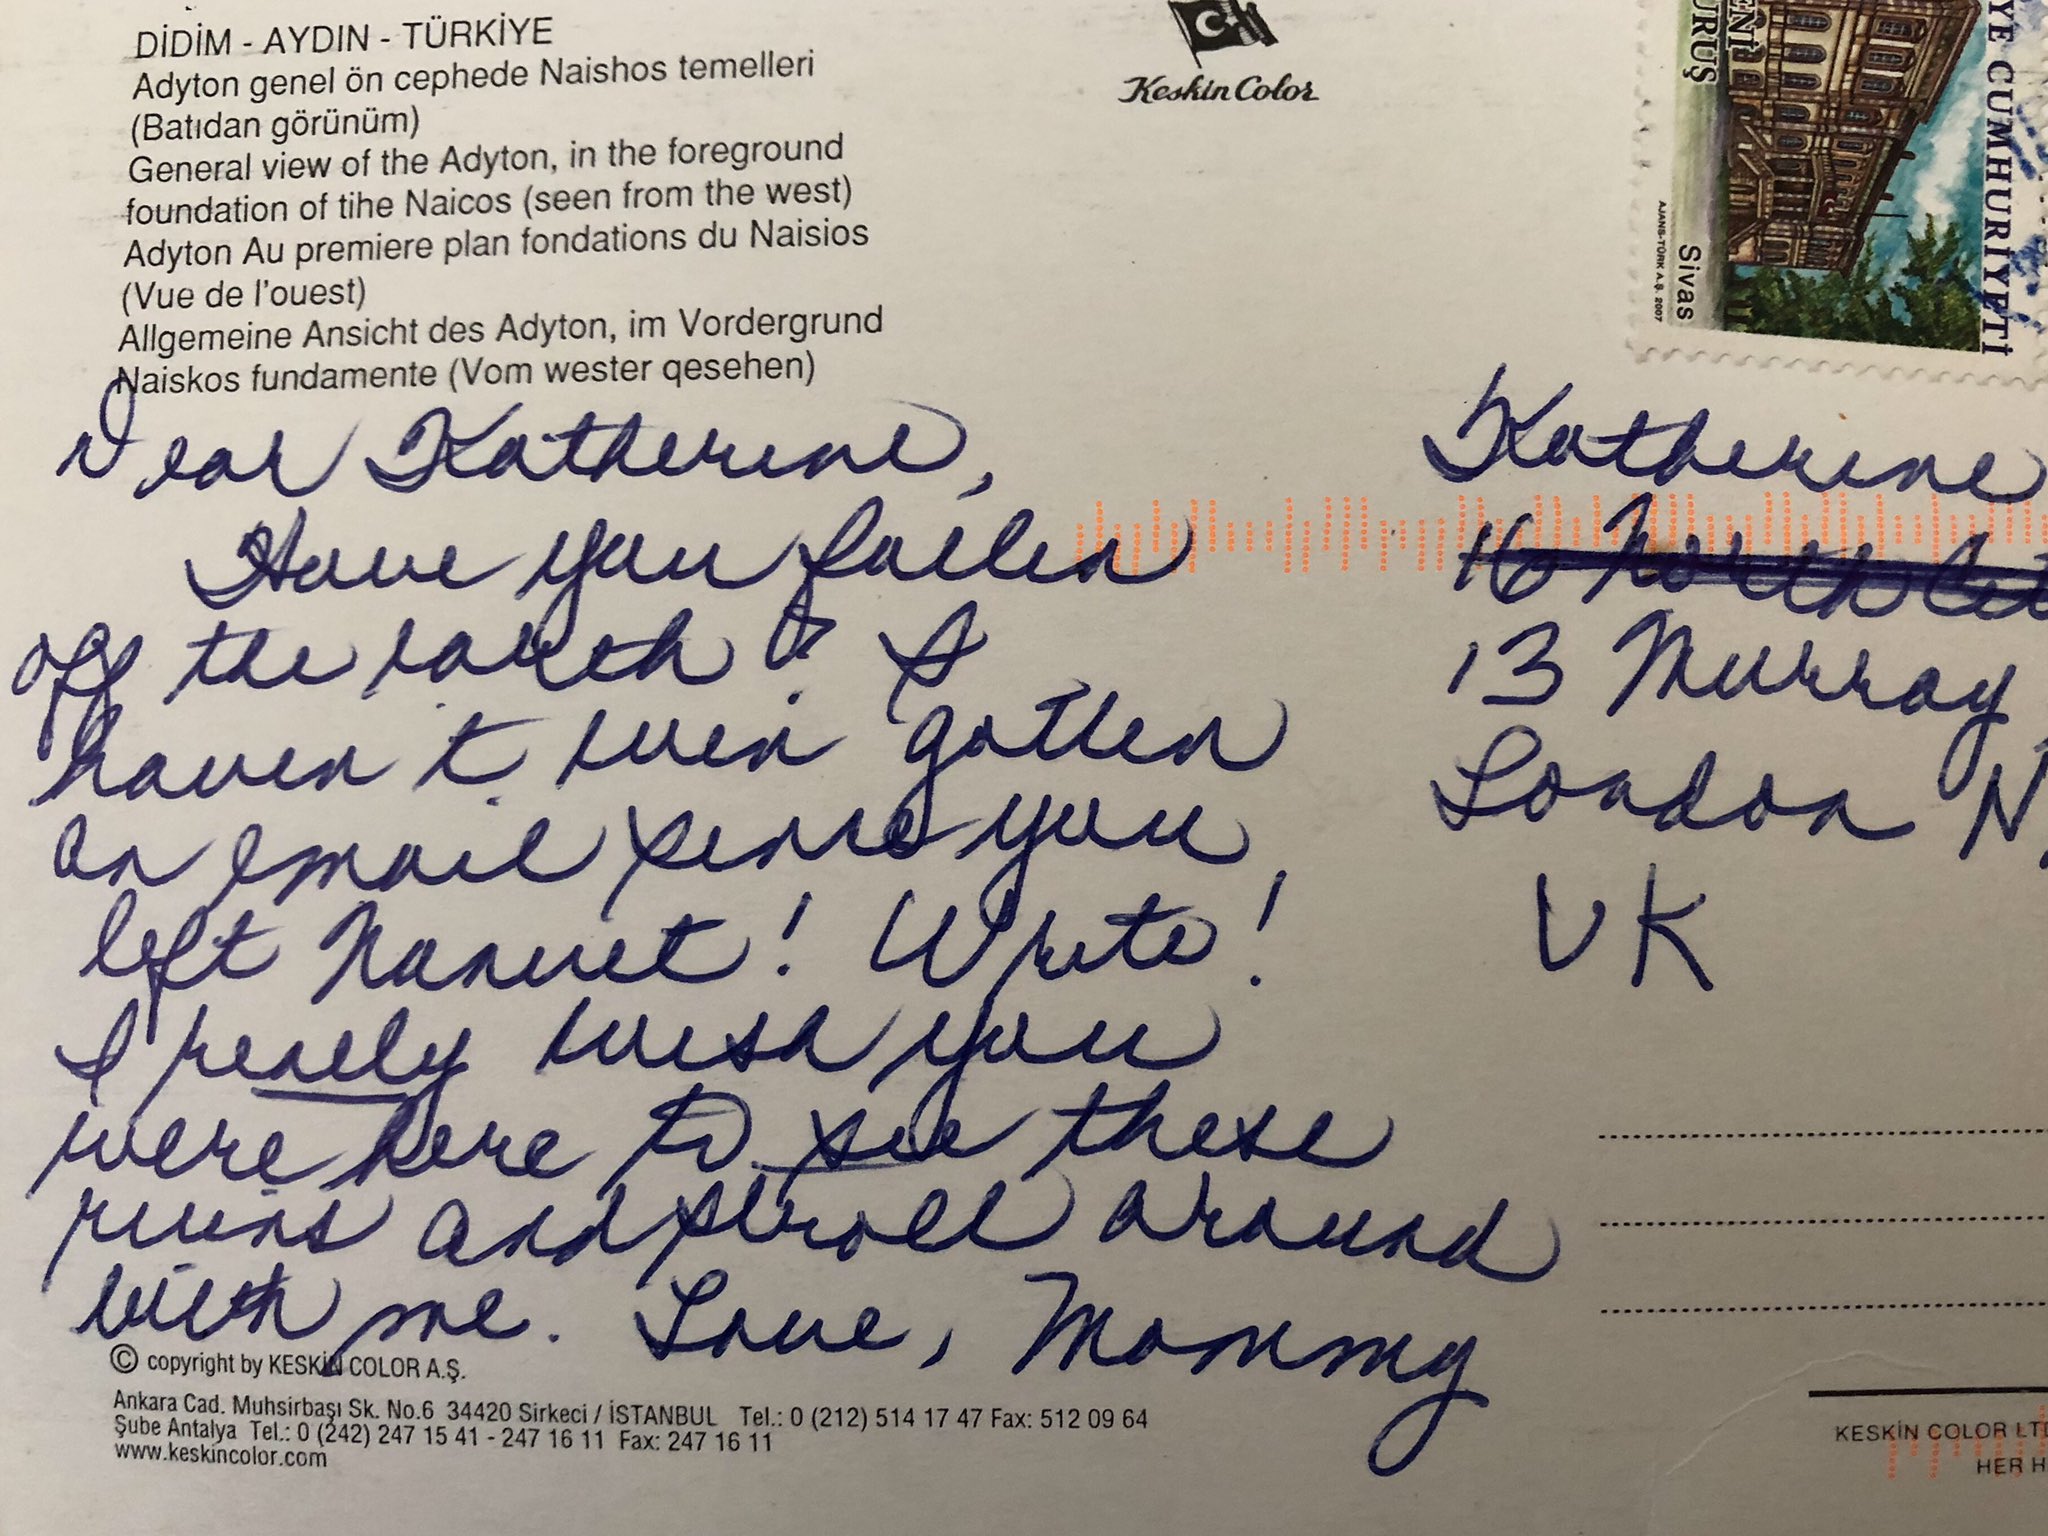 DİDİM - AYDIN - TÜRKİYE
Adyton genel ön cephede Naishos temelleri
(Batıdan görünüm)
General view of the Adyton, in the foreground
foundation of tihe Naicos (seen from the west)
Adyton Au premiere plan fondations du Naisios
(Vue de l'ouest)
Allgemeine Ansicht des Adyton, im Vordergrund
Naiskos fundamente (Vom wester qesehen)
Keskin Color
YE CUMHURİYETİ
ENİ
URUŞ
Sivas
AJANS-TÜRK A.Ş. 2007
Dear Katherine,
Have you fallen
off the earth? I
haven't even gotten
an email since you
left Nanuet! Write!
I really wish you
were here to see these
ruins and stroll around
with me. Love, Mommy
Katherine
16 North
13 Murray
London N
UK
© copyright by KESKİN COLOR A.Ş.
Ankara Cad. Muhsirbaşı Sk. No.6 34420 Sirkeci / İSTANBUL Tel.: 0 (212) 514 17 47 Fax: 512 09 64
Şube Antalya Tel.: 0 (242) 247 15 41 - 247 16 11 Fax: 247 16 11
www.keskincolor.com
KESKİN COLOR LTD
HER H